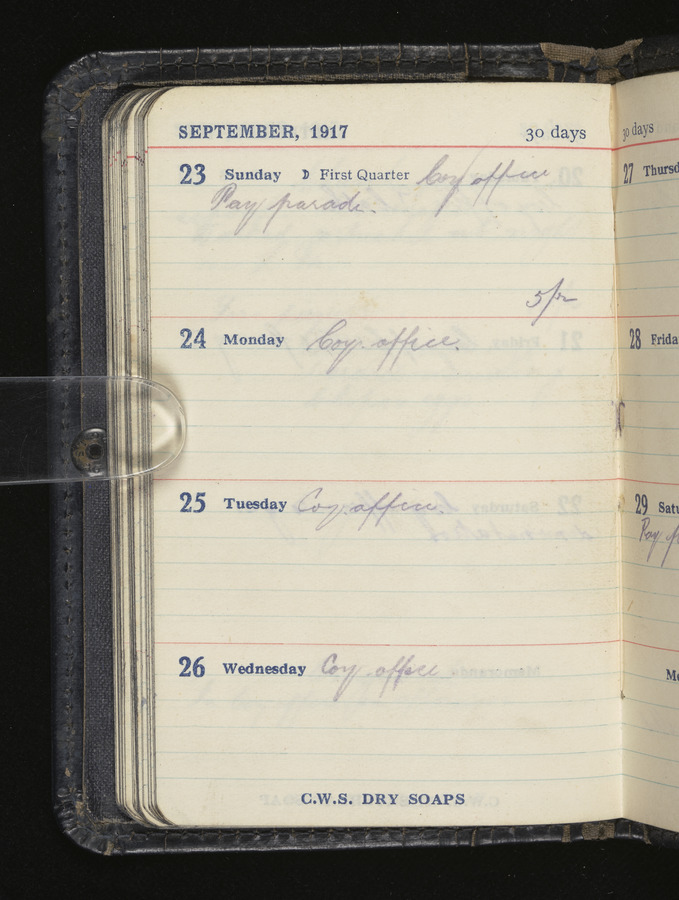 SEPTEMBER, 1917 30 days
23 Sunday First Quarter Coy office
Pay parade.
5/-
24 Monday Coy. office.
25 Tuesday Coy. office.
26 Wednesday Coy. office
C.W.S. DRY SOAPS
30 days
27 Thursd
28 Frida
29 Satu
Pay p
Me